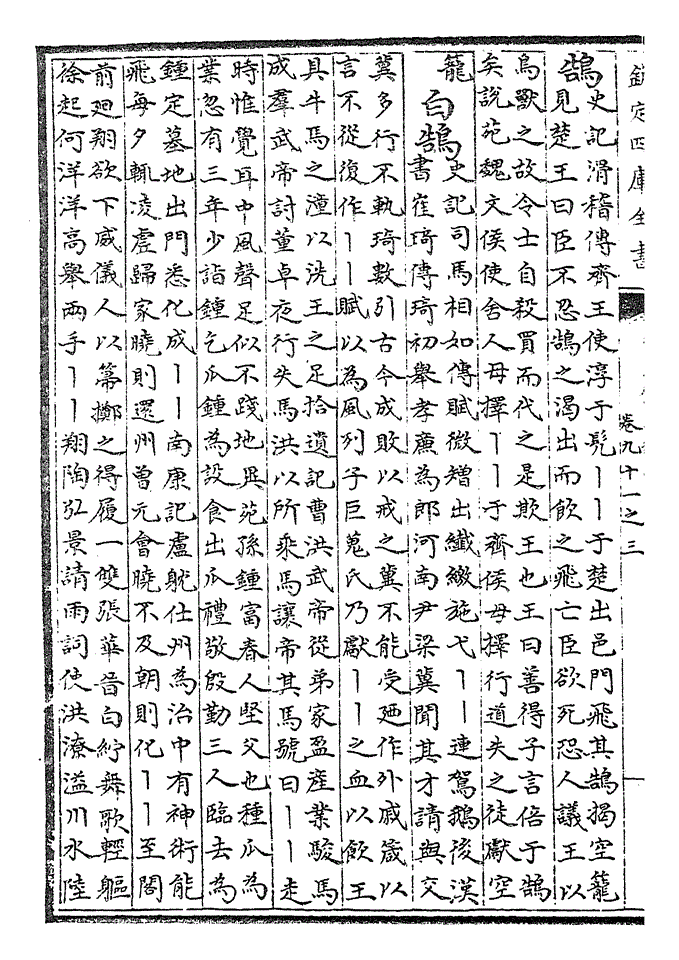 欽定四庫全書
卷九十一之三
鵠史記滑稽傳齊王使淳于髠丨丨于楚出邑門飛其鵠揭空籠
見楚王曰臣不忍鵠之渴出而飲之飛亡臣欲死恐人議王以
鳥獸之故令士自殺買而代之是欺王也王曰善得子言倍于鵠
矣說苑魏文侯使舍人毋擇丨丨于齊侯毋擇行道失之徒獻空
籠
白鵠史記司馬相如傳賦微矰出纖繳施弋丨丨連駕鵝後漢
書崔琦傳琦初舉孝廉為郎河南尹梁冀聞其才請與交
冀多行不軌琦數引古今成敗以戒之冀不能受廼作外戚箴以
言不從復作丨丨賦以為風列子巨蒐氏乃獻丨丨之血以飲王
具牛馬之湩以洗王之足拾遺記曹洪武帝從弟家盈産業駿馬
成羣武帝討董卓夜行失馬洪以所乘馬讓帝其馬號曰丨丨走
時惟覺耳中風聲足似不踐地異苑孫鍾富春人堅父也種瓜為
業忽有三年少詣鍾乞瓜鍾為設食出瓜禮敬殷勤三人臨去為
鍾定墓地出門悉化成丨丨南康記盧躭仕州為治中有神術能
飛每夕輒凌虛歸家曉則還州曾元會曉不及朝則化丨丨至閤
前廻翔欲下威儀人以箒擲之得履一雙張華晉白紵舞歌輕軀
徐起何洋洋高舉兩手丨丨翔陶弘景請雨詞使洪潦溢川水陸